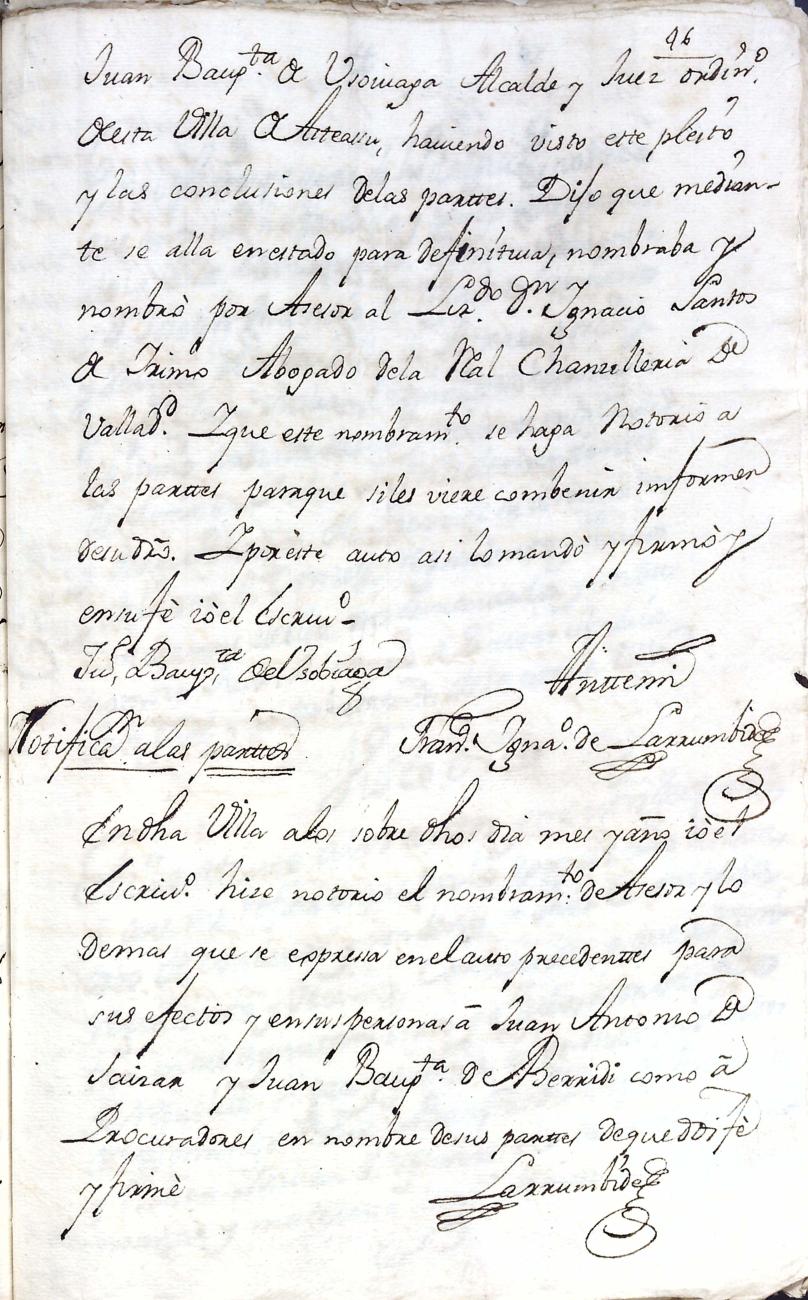 46
Juan Baupta. de Usoiuaga Alcalde y Juez ordinro.
desta Villa de Asteassu, hauiendo visto este pleito
y las conclusiones delas parttes. Dijo que median-
te se alla enestado para definitiua, nombraba y
nombrò por Asesor al Lizdo. Dn. Ygnacio Santos
de Yrimo Abogado dela Rl Chanzilleria de
Valladd. Yque este nombramto. se haga Notorio a
las parttes paraque siles viere combenir imformen
desu dro. Yporèste auto asi lomandò yfirmò y
ensufè iò el Escriuo-
Jun. Baupta. de Usobiaga
Anttemi
Notifican. alas parttes
Frando. Ygnao. de Larrumbide
En dha Villa alos sobre dhos dia mes yaño iò el
Escriuo. hize notorio el nombramto. de Asesor ylo
demas que se expressa enelauto precedenttes para
sus efectos y ensuspersonas ā Juan Antonio de
Saizar y Juan Baupta. de Berridi como ā
Procuradores en nombre desus parttes deque doi fè
yfirmè
Larrumbide